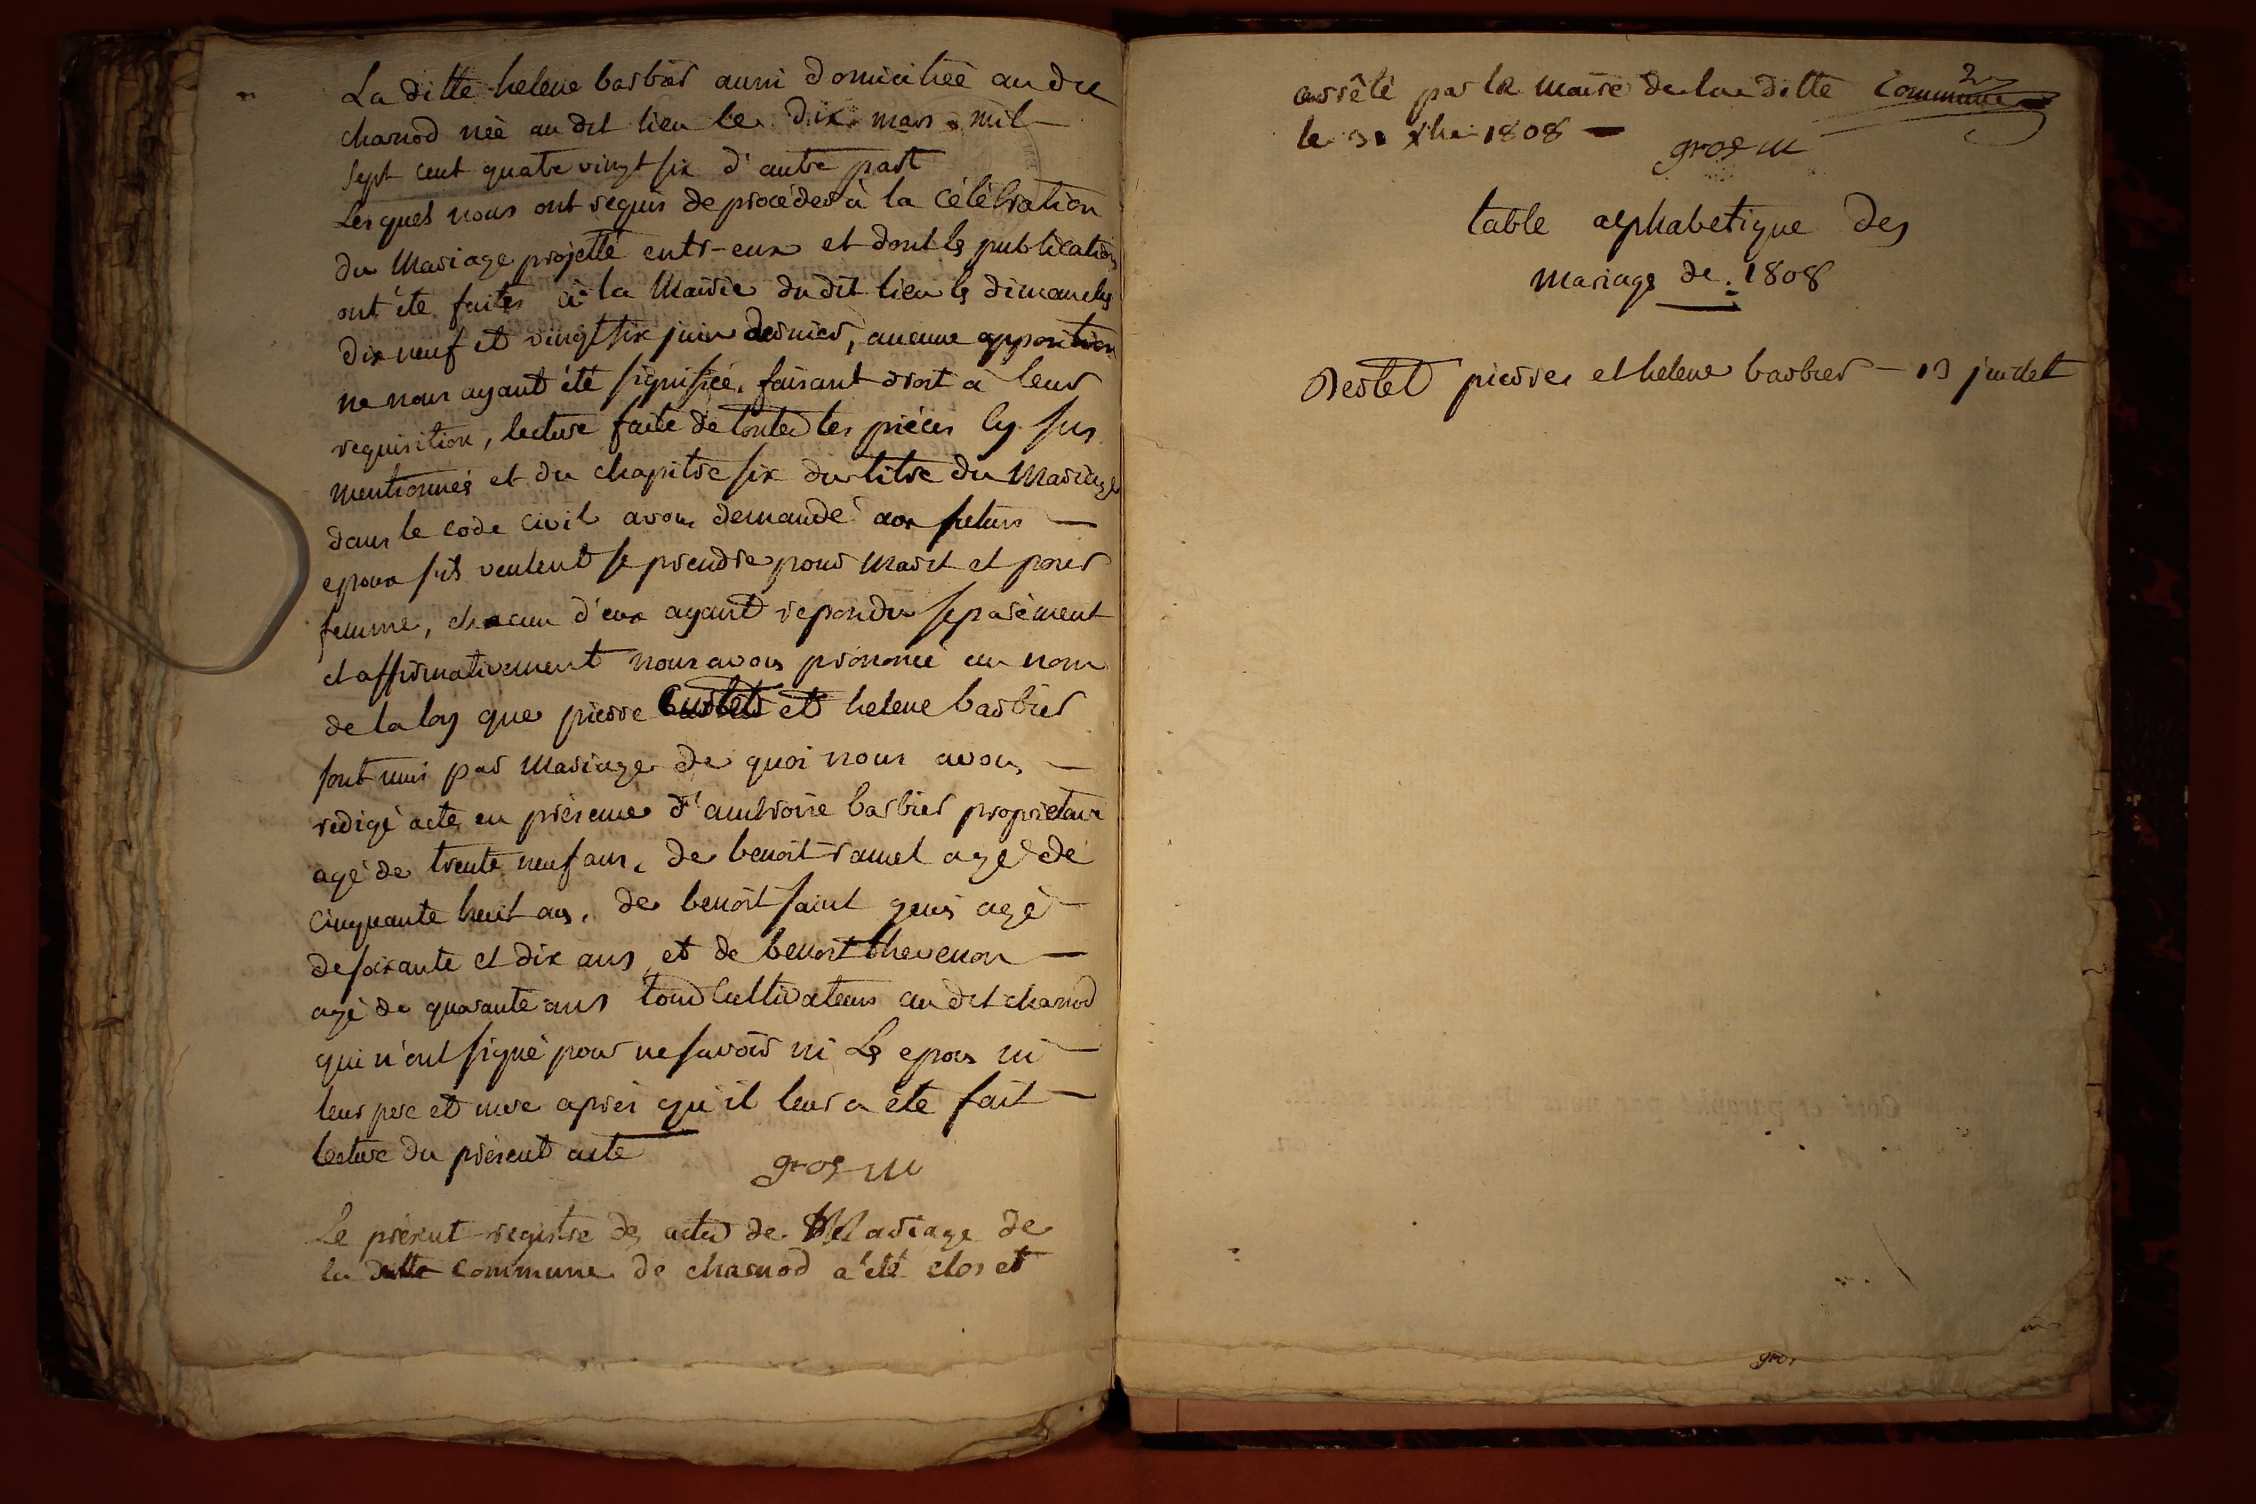 La ditte helene barbier aussi domiciliée au dit
charnod née au dit lieu le dix mars mil
sept cent quatre vingt six d'autre part
Lesquels nous ont requis de procéder à la célébration
du Mariage projetté entr-eux et dont les publications
ont été faites à la Mairie du dit lieu les dimanches
dix neuf et vingt six juin dernier, aucune opposition
ne nous ayant été signifiée, faisant droit à leur
requisition, lecture faite de toutes les pièces cy sus
mentionnés et du chapitre six du titre du Mariage
dans le code civil avons demandé aux futurs
epoux s'ils veulent se prendre pour Mari et pour
femme, chacun d'eux ayant repondu separément
et affirmativement nous avons prononcé au nom
de la loy que pierre et helene barbier
sont unis par Mariage de quoi nous avons
redigé acte en présence d'ambroise barbier proprietaire
agé de trente neuf ans, de benoit ramel agé de
cinquante huit ans, de benoit saint genis agé
de soixante et dix ans et de benoit thevenon
agé de quarante ans tous cultivateurs au dit charnod
qui n'ont signé pour ne savoir ni les epoux ni
leur pere et mere après qu'il leur a été fait
lecture du présent acte
gros m
Le présent registre des actes de Mariage de
la ditte commune de charnod a été clos et
2
arrêté par le maire de la ditte Commune
le 31 xbre 1808
gros m
table alphabetique des
mariage de 1808
pierre et helene barbier - 13 juillet
gros